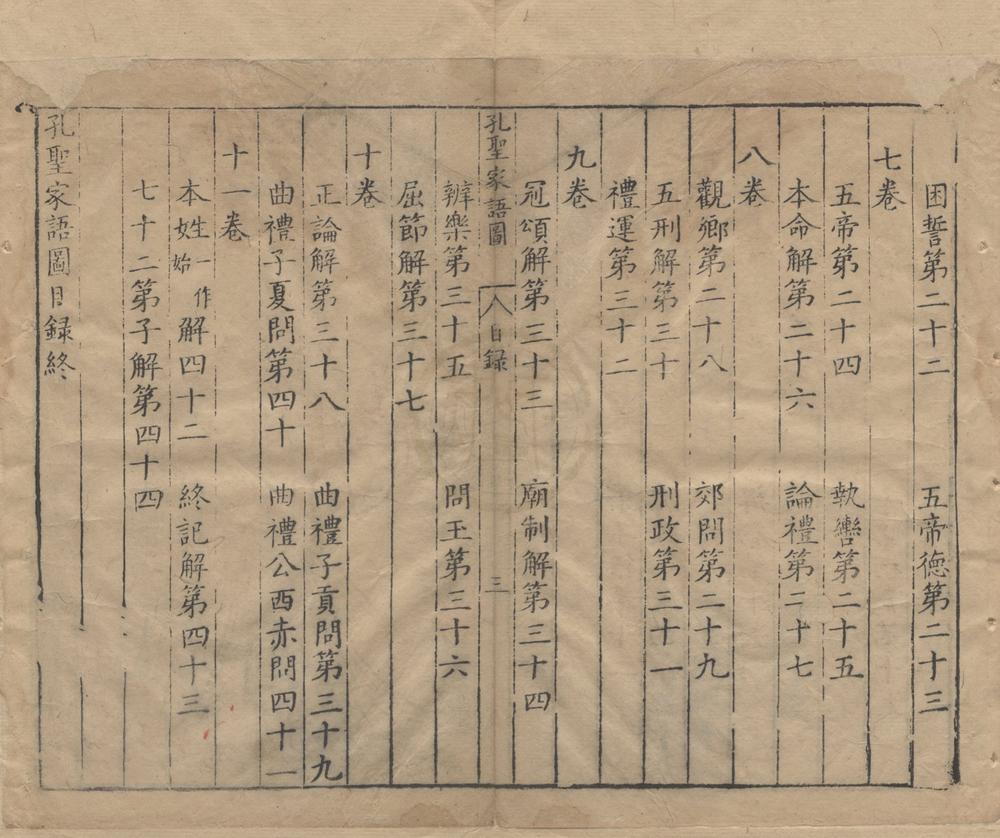 困誓第二十二　五帝德第二十三
七卷
五帝第二十四　執轡第二十五
本命解第二十六　論禮第二十七
八卷
觀鄉第二十八　郊問第二十九
五刑解第三十　刑政第三十一
禮運第三十二
九卷
冠頌解第三十三　廟制解第三十四
孔聖家語圖　目錄　三
辨樂第三十五　問玉第三十六
屈節解第三十七
十卷
正論解第三十八　曲禮子貢問第三十九
曲禮子夏問第四十　曲禮公西赤問四十一
十一卷
本姓一作始解四十二　終記解第四十三
七十二第子解第四十四
孔聖家語圖目録終